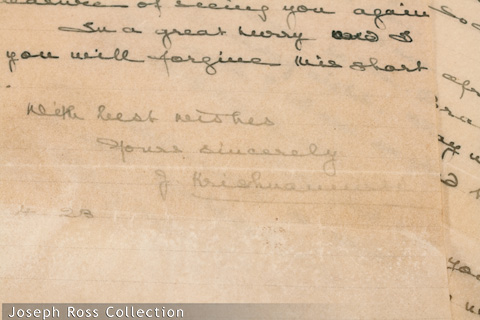 pleasure of seeing you again
In a great hurry and I
you will forgive this short
With best wishes
Yours sincerely
J Krishnamurti
28
you
Joseph Ross Collection